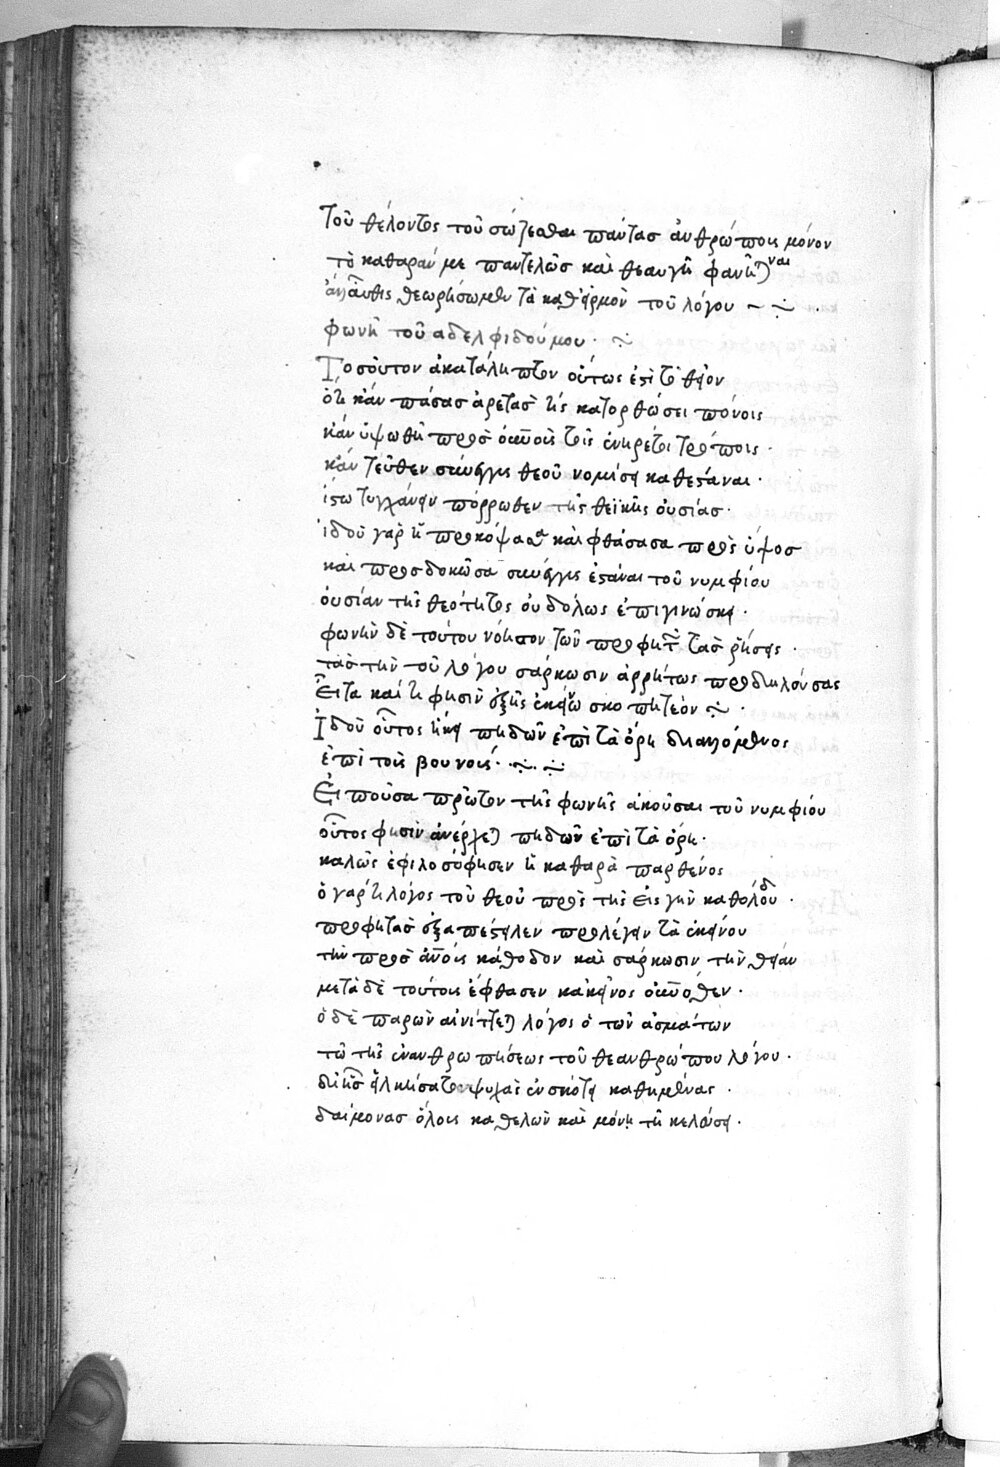 Τοῦ θέλοντος τοῦ σώζεσθαι πάντασ ἀνθρώποις μόνον
τὸ καθαράν με παντελῶσ καὶ θεαυγῆ φανῆναι
ἀλλ' αὖθις θεωρήσωμεν τὰ καθειρμὸν τοῦ λόγου
φωνὴ τοῦ αδελφιδού μου ·
Τοσοῦτον ἀκατάληπτον οὕτως ἐστὶ τὸ θεῖον
ὅτι κἂν πάσασ ἀρετασ τίς κατορθώσει πόνοις
κἂν ὑψωθῆ πρὸσ οὐρανοὺς τοῖς ἐναρέτοις τρόποις ·
κἂν τεῦθεν σύνεγγις θεοῦ νομίσει καθεστάναι ·
ἴστω τυγχάνειν πόρρωθεν τῆς θεϊκῆς οὐσίας ·
ἰδοὺ γαρ ἡ προκόψασα καὶ φθάσασα προς ὕψοσ
καὶ προσδοκῶσα σύνεγγις ἐστάναι τοῦ νυμφίου
οὐσίαν τῆς θεότητος οὐδόλως ἐπιγινώσκει ·
φωνὴν δὲ τούτου νόησον τῶν προφητῶν τὰσ ῥήσεις ·
τὰσ τὴν τοῦ λόγου σάρκωσιν ἀρρήτως προδηλούσας
Εἶτα καὶ τί φησὶν ἑξῆς ἐκείνω σκοπητέον
Ἰδοὺ οὗτος ἥκει πηδῶν ἐπὶ τὰ ὄρη διαλλόμενος
ἐπὶ τοὺς βουνούς ·
Εἰποῦσα πρῶτον τῆς φωνῆς ἀκοῦσαι τοῦ νυμφίου
οὗτος φησὶν ἀνέρχεται πηδῶν ἐπὶ τὰ ὄρη ·
καλῶς ἐφιλοσόφησεν ἡ καθαρὰ παρθένος
ὁ γαρ τοι λόγος τοῦ θεοῦ πρὸς τῆς εἰς γὴν καθόδου ·
προφήτασ ἐξαπέστειλεν προλέγειν τὰ ἐκείνου
τὴν προσ ἀνους κάθοδον καὶ σάρκωσιν τὴν θείαν
μετὰ δὲ τούτοις ἔφθασεν κἀκεῖνος οὐνόθεν ·
ὁ δὲ παρὼν αἰνίττεται λόγος ὁ τῶν ἀσμάτων
τῶ τῆς ἐνανθρωπήσεως τοῦ θεανθρώπου λόγου ·
καθημένας ·
δαίμονασ ὅλοις καθελὼν καὶ μόνη τῆ κελεύσει ·